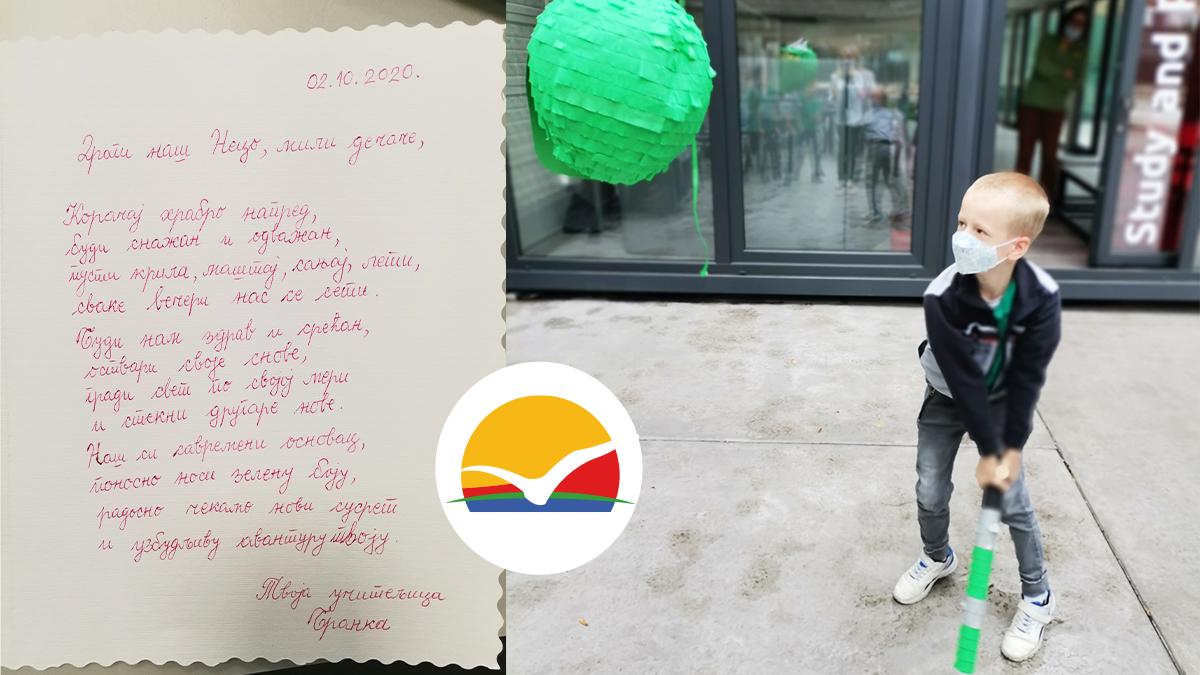 02.10.2020.
Драги наш Нецо, мили дечаче,
Корачај храбро напред,
буди снажан и одважан,
пусти крила, маштај, сањај, лети,
сваке вечери нас се сети.
Буди нам здрав и срећан,
оствари своје снове,
гради свет по својој мери
и стекни другаре нове.
Наш си савремени основац,
поносно носи зелену боју,
радосно чекамо нови сусрет
и узбудљиву авантуру твоју.
Твоја учитељица
Бранка
Study and